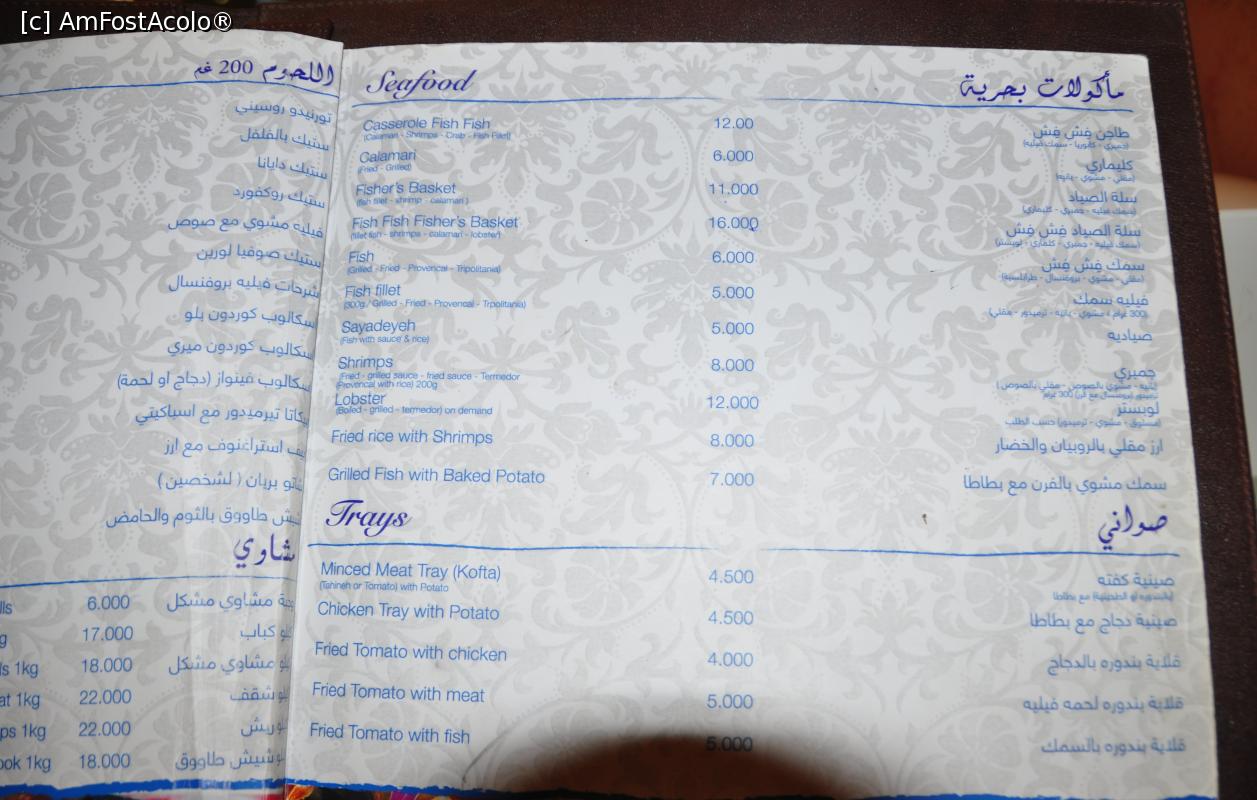 [c] AmFostAcolo®
اللحوم 200 غم
تورنيدو روسيني
ستيك بالفلفل
ستيك دايانا
ستيك روكفورد
فيليه مشوي مع صوص
ستيك صوفيا لورين
شرحات فيليه بروفنسال
سكالوب كوردون بلو
سكالوب كوردون ميري
سكالوب فينواز (دجاج او لحمة)
تيرميدور مع اسباكيتي
استراغنوف مع ارز
بريان (لشخصين)
طاووق بالثوم والحامض
شاوي
6.000 مشاوي مشكل
17.000 كباب
1kg 18.000 مشاوي مشكل
1kg 22.000 شقف
1kg 22.000 ريش
1kg 18.000 شيش طاووق
Seafood مأكولات بحرية
Casserole Fish Fish 12.00 طاجن فِش فِش
(Calamari - Shrimps - Crab - Fish Fillet) (جمبري - كابوريا - سمك فيليه)
Calamari 6.000 كليماري
(Fried - Grilled) (مقلي - مشوي - بانيه)
Fisher's Basket 11.000 سلة الصياد
(fish fillet - shrimp - calamari) (سمك فيليه - جمبري - كليماري)
Fish Fish Fisher's Basket 16.000 سلة الصياد فِش فِش
(fillet fish - shrimps - calamari - lobster) (سمك فيليه - جمبري - كلماري - لوبستر)
Fish 6.000 سمك فِش فِش
(Grilled - Fried - Provencal - Tripolitania) (مقلي - مشوي - بروفنسال - طرابلسية)
Fish fillet 5.000 فيليه سمك
(300g / Grilled - Fried - Provencal - Trpolitania) (300 غرام / مشوي - بانيه - ترميدور - مقلي)
Sayadeyeh 5.000 صياديه
(Fish with sauce & rice)
Shrimps 8.000 جمبري
(Fried - grilled sauce - fried sauce - Termedor (بانيه - مشوي بالصوص - مقلي بالصوص)
(Provencal with rice) 200g
Lobster 12.000 لوبستر
(Boiled - grilled - termedor) on demand (مسلوق - مشوي - ترميدور) حسب الطلب
Fried rice with Shrimps 8.000 ارز مقلي بالروبيان والخضار
Grilled Fish with Baked Potato 7.000 سمك مشوي بالفرن مع بطاطا
Trays صواني
Minced Meat Tray (Kofta) 4.500 صينية كفته
(Tahineh or Tomato) with Potato (بالبندوره او الطحينية) مع بطاطا
Chicken Tray with Potato 4.500 صينية دجاج مع بطاطا
Fried Tomato with chicken 4.000 قلاية بندوره بالدجاج
Fried Tomato with meat 5.000 قلاية بندوره لحمه فيليه
Fried Tomato with fish 5.000 قلاية بندوره بالسمك